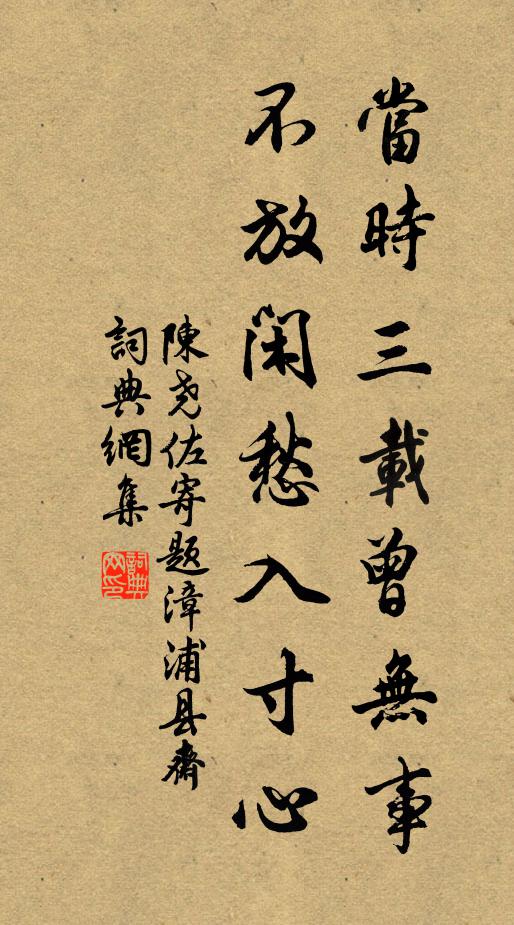 當時三載曾無事
不放閑愁入寸心
陳尧佐寄题漳浦县齋
詞典網集
詞典
网印